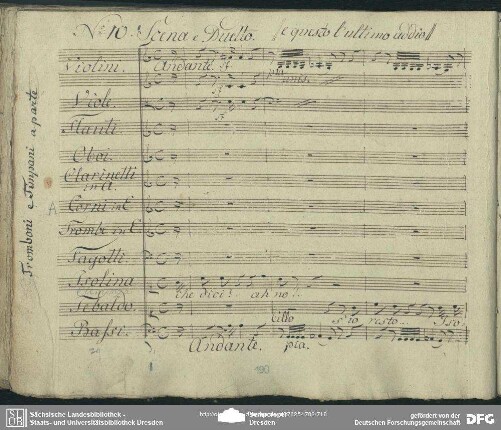 No 10. Scena e Duetto. // e questo l'ultimo addio //
Violini.
Andante.
Viole.
Flauti
Oboi.
Clarinetti
in A.
Corni in C
Trombe in C
Fagotti.
Isolina
che dici! ah no!.
Tebaldo.
s'io resto. Iso:
Bassi.
Andante. pia.
Tromboni e Timpani a parte
190
Sächsische Landesbibliothek -
Staats- und Universitätsbibliothek Dresden
SLUB
Dresden
gefördert von der
Deutschen Forschungsgemeinschaft
DFG